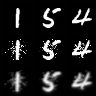 1 5 4
1 5 4
1 5 4